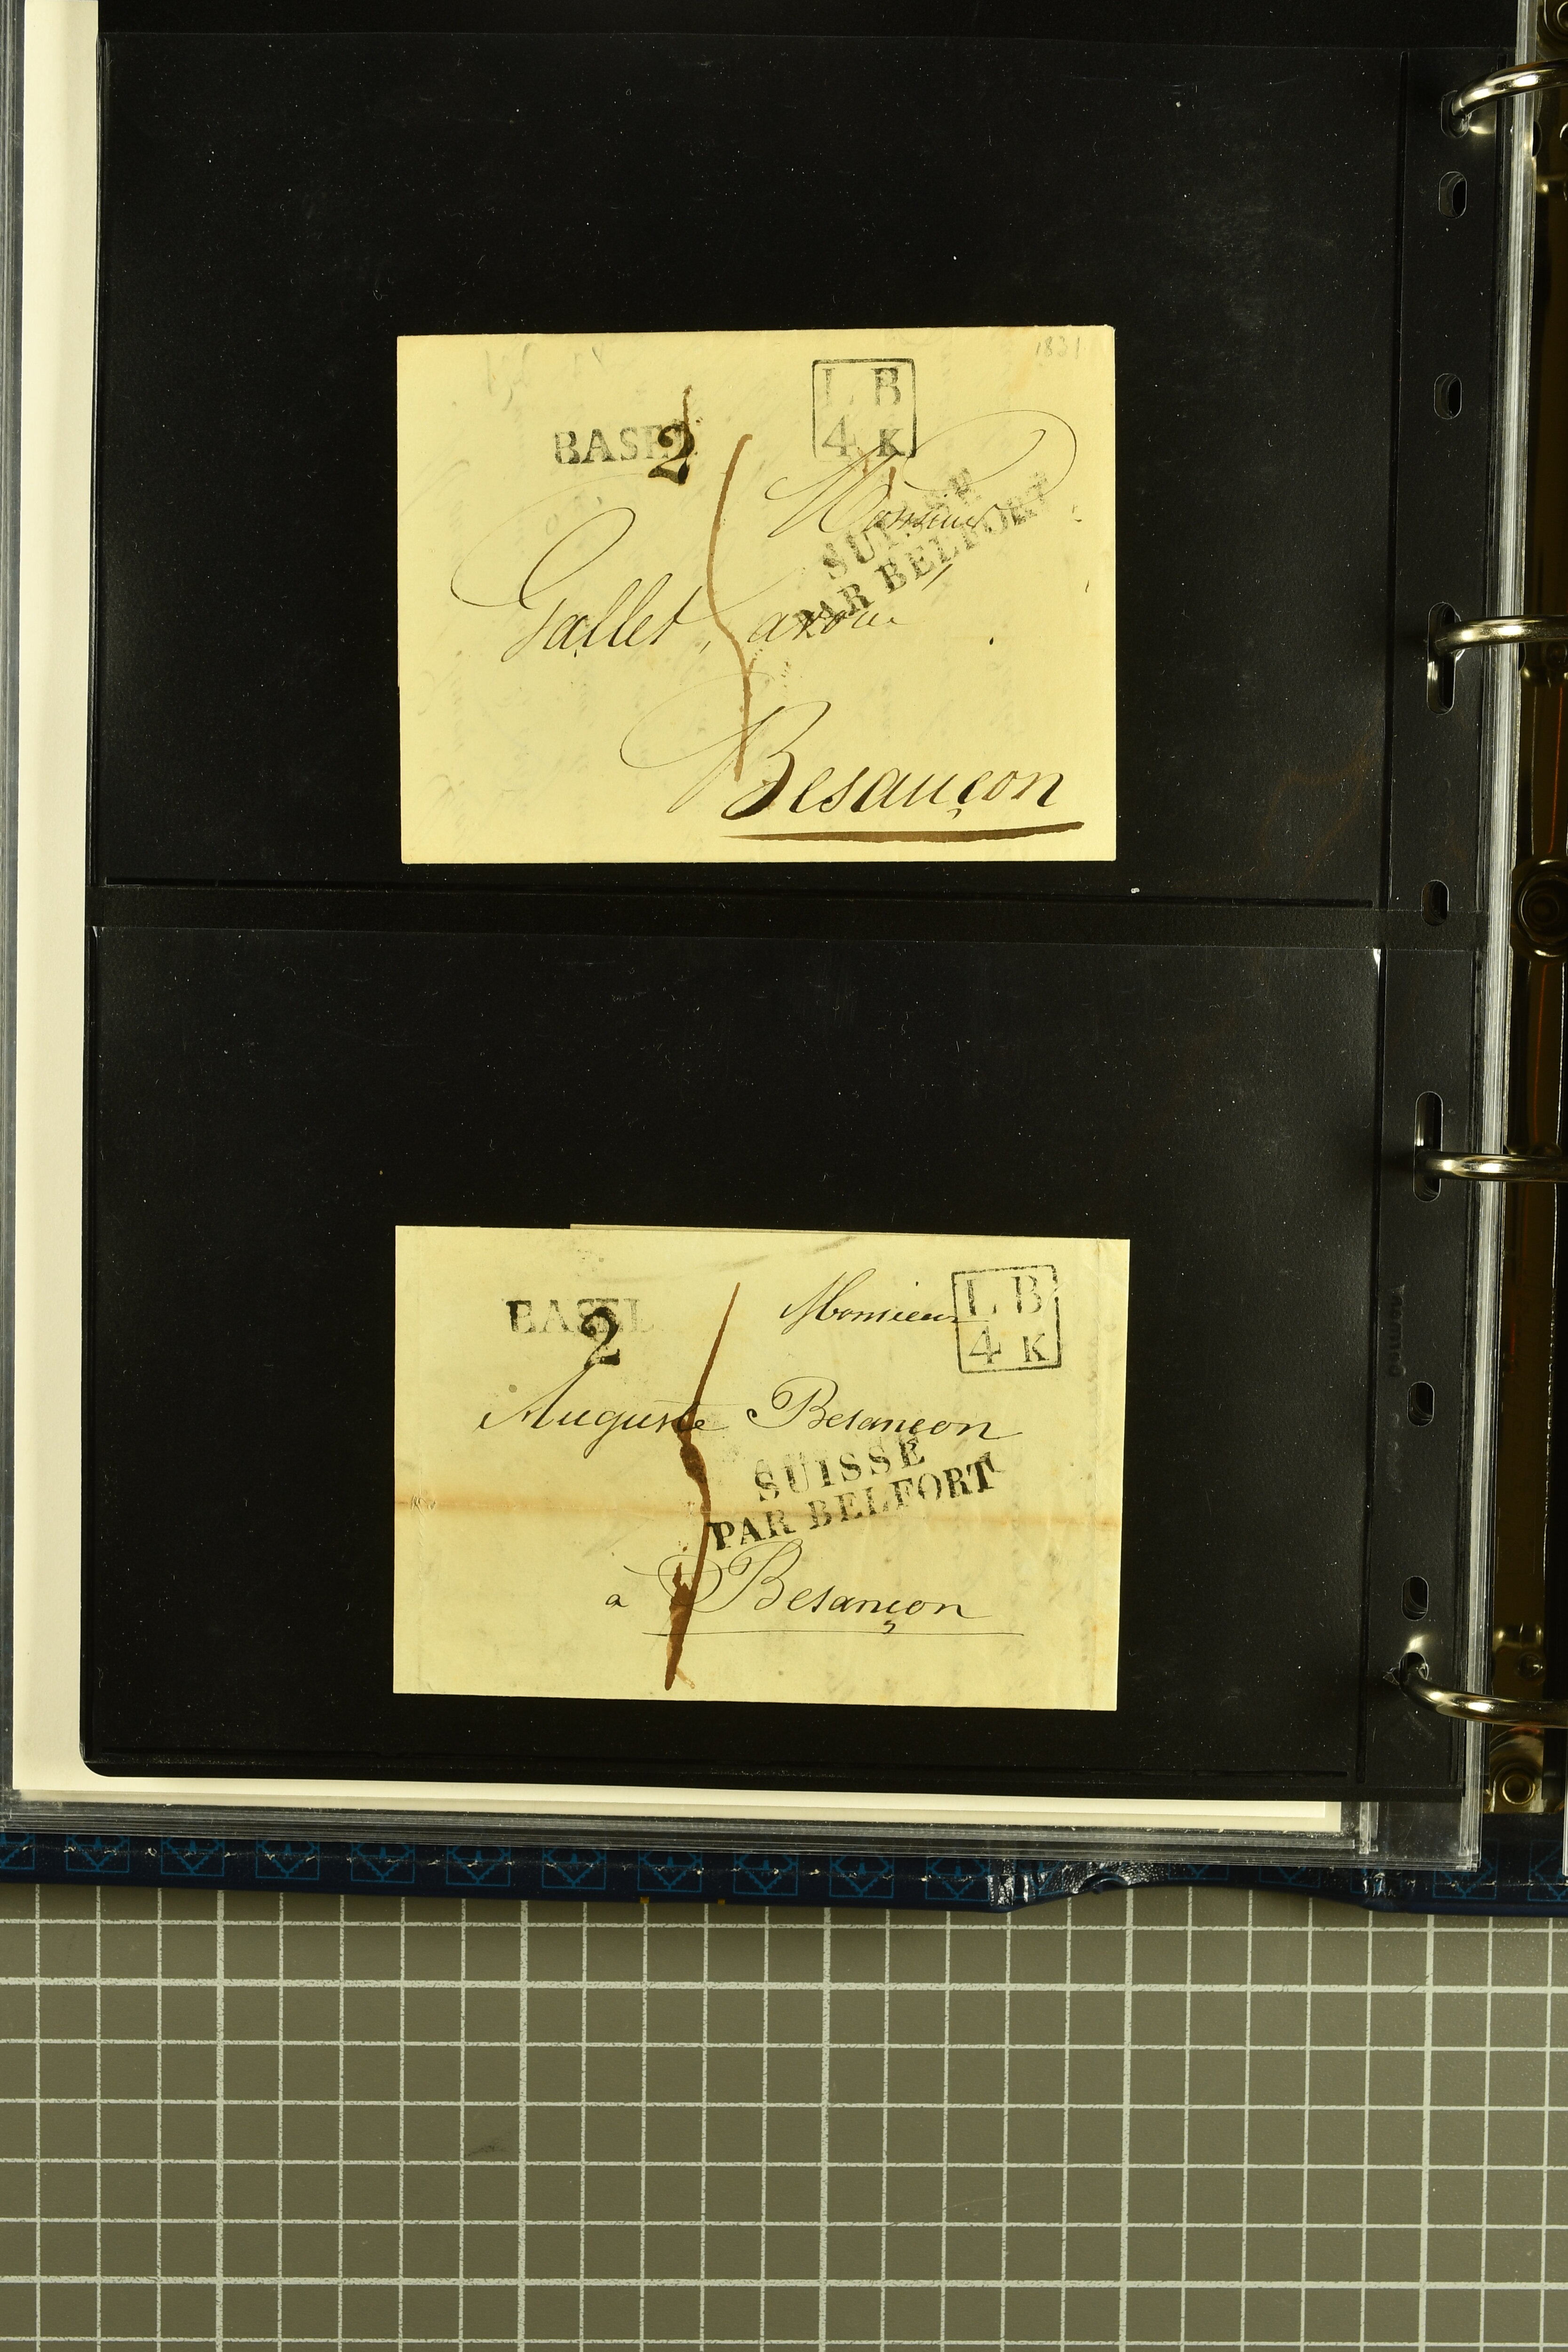 1831
L B
4 K
BASEL
2
Monsieur
SUISSE
PAR BELFORT
Gallet, avoué
Besançon
BASEL
2
Monsieur
L B
4 K
Auguste Besançon
SUISSE
PAR BELFORT
à Besançon